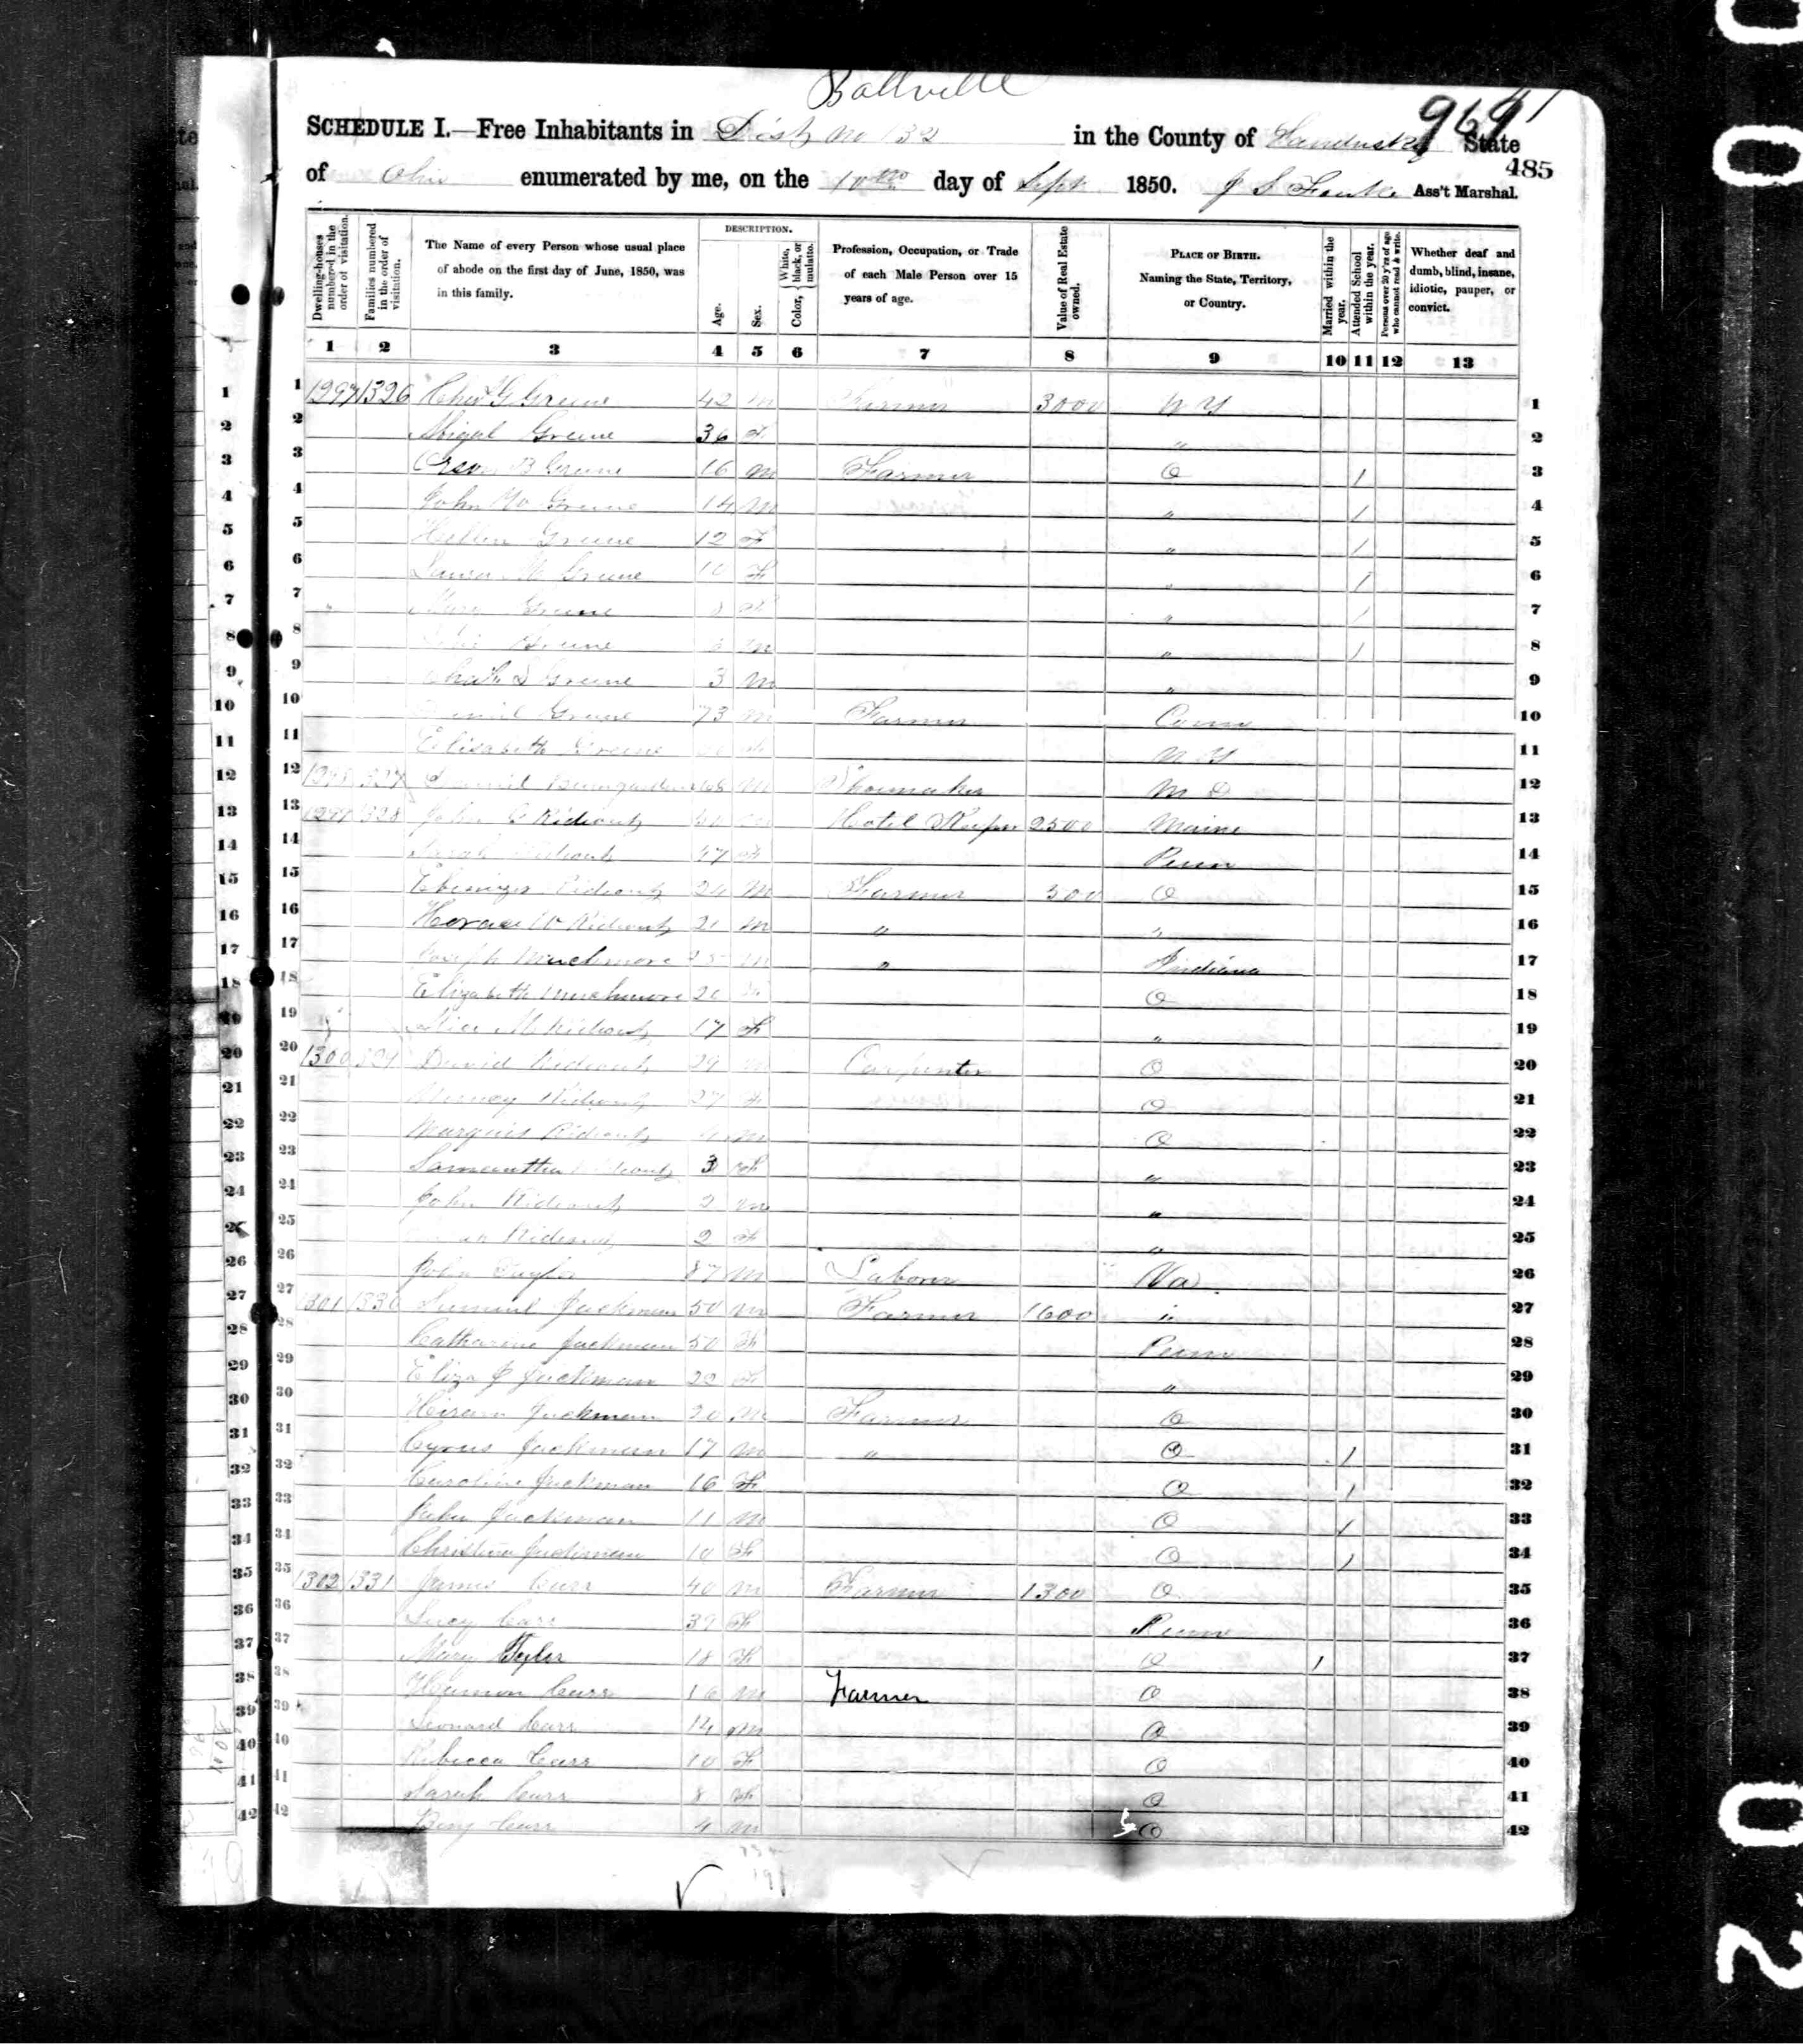 Ballville
969
SCHEDULE I.—Free Inhabitants in Dist No 132 in the County of Sandusky State
485
of Ohio enumerated by me, on the 10th day of Sept 1850. Ass't Marshal.
Dwelling-houses numbered in the order of visitation.
Families numbered in the order of visitation.
The Name of every Person whose usual place of abode on the first day of June, 1850, was in this family.
DESCRIPTION.
Age.
Sex.
Color, { White, black, or mulatto.
Profession, Occupation, or Trade of each Male Person over 15 years of age.
Value of Real Estate owned.
PLACE OF BIRTH. Naming the State, Territory, or Country.
Married within the year.
Attended School within the year.
Persons over 20 y'rs of age who cannot read & write.
Whether deaf and dumb, blind, insane, idiotic, pauper, or convict.
1 2 3 4 5 6 7 8 9 10 11 12 13
1 1297 1326 Greene 42 m Farmer 3000 N Y 1
2 Abigal Greene 36 F " 2
3 Orson B Greene 16 m Farmer O 1 3
4 John Greene 14 m " 1 4
5 Hellen Greene 12 F " 1 5
6 Laura Greene 10 F " 1 6
7 Mary Greene F " 1 7
8 Greene m " 1 8
9 Greene 3 m " 9
10 Greene 73 m Farmer Conn 10
11 Elisabeth Greene F N Y 11
12 m Shoemaker M D 12
13 John C Rideout m Hotel Keeper 2500 Maine 13
14 Sarah Rideout 47 F Penn 14
15 Ebenezer Rideout 24 m Farmer 500 O 15
16 Horace W Rideout 21 m " " 16
17 Joseph Muchmore 25 m " Indiana 17
18 Elizabeth Muchmore 20 F O 18
19 Alice M Rideout 17 F " 19
20 1300 1329 David Rideout 29 m Carpenter O 20
21 Rideout 27 F O 21
22 Marquis Rideout m O 22
23 Samantha Rideout 3 F " 23
24 John Rideout 2 m " 24
25 Rideout 2 F " 25
26 John 87 m Laborer Va 26
27 1301 1330 Samuel Jackman 50 m Farmer 1600 " 27
28 Catharine Jackman 50 F Penn 28
29 Eliza J Jackman 22 F " 29
30 Hiram Jackman 20 m Farmer O 30
31 Cyrus Jackman 17 m " O 1 31
32 Caroline Jackman 16 F O 1 32
33 John Jackman 11 m O 1 33
34 Christina Jackman 10 F O 1 34
35 1302 1331 James Carr 40 m Farmer 1300 O 35
36 Lucy Carr 39 F Penn 36
37 Mary Tyler 18 F O 1 37
38 Harmon Carr 16 m Farmer O 38
39 Leonard Carr 14 m O 39
40 Rebecca Carr 10 F O 40
41 Sarah Carr 8 F O 41
42 Benj Carr 4 m O 42